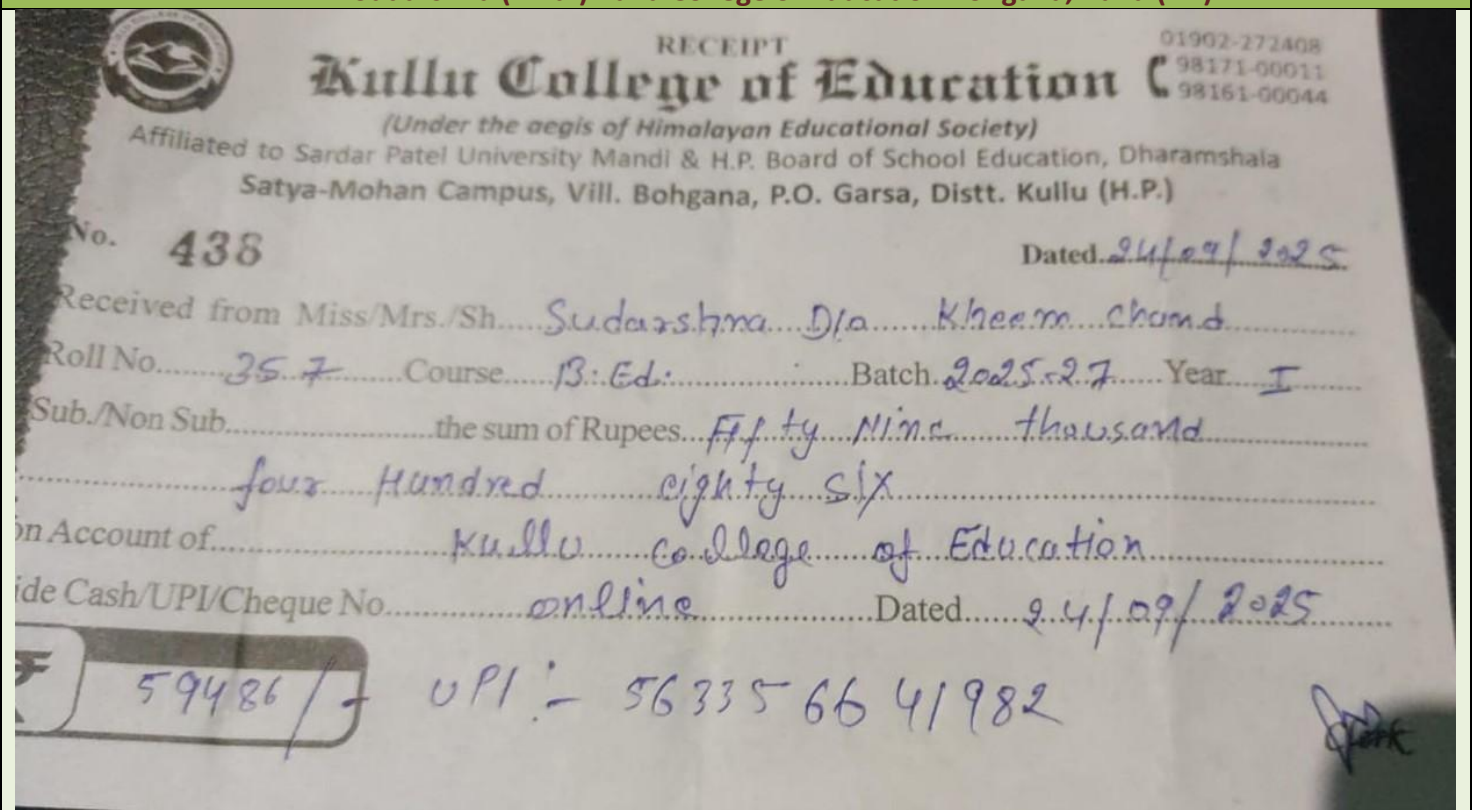 RECEIPT
Kullu College of Education
01902-272408
98171-00011
98161-00044
(Under the aegis of Himalayan Educational Society)
Affiliated to Sardar Patel University Mandi & H.P. Board of School Education, Dharamshala
Satya-Mohan Campus, Vill. Bohgana, P.O. Garsa, Distt. Kullu (H.P.)
No. 438 Dated. 24/09/2025
Received from Miss/Mrs./Sh. Sudarshna D/o Kheem Chand
Roll No. 357 Course B.Ed. Batch 2025-27 Year I
Sub./Non Sub. the sum of Rupees Fifty Nine thousand
four Hundred eighty six
on Account of Kullu college of Education
ide Cash/UPI/Cheque No. online Dated 24/09/2025
₹ 59486/- UPI :- 563356641982